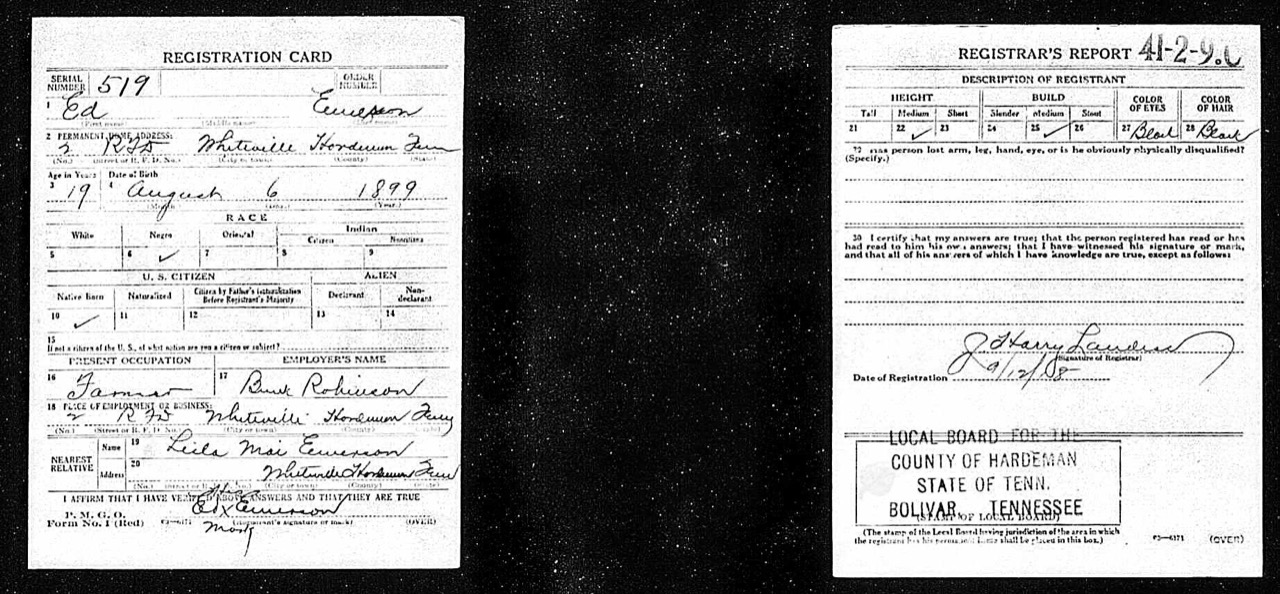 REGISTRATION CARD
SERIAL NUMBER 519 ORDER NUMBER
1 Ed Emerson
(First name) (Middle name) (Last name)
2 PERMANENT HOME ADDRESS:
2 RFD Whiteville Hardeman Tenn
(No.) (Street or R. F. D. No.) (City or town) (County) (State)
Age in Years Date of Birth
3 19 4 August 6 1899
(Month) (Day.) (Year.)
RACE
White Negro Oriental Indian
Citizen Noncitizen
5 6 ✓ 7 8 9
U. S. CITIZEN ALIEN
Native Born Naturalized Citizen by Father's Naturalization Before Registrant's Majority Declarant Non-declarant
10 ✓ 11 12 13 14
15
If not a citizen of the U. S., of what nation are you a citizen or subject?
PRESENT OCCUPATION EMPLOYER'S NAME
16 Farmer 17 Robinson
18 PLACE OF EMPLOYMENT OR BUSINESS:
2 RFD Whiteville Hardeman Tenn
(No.) (Street or R. F. D. No.) (City or town) (County) (State)
NEAREST RELATIVE Name 19 Leila Mai Emerson
Address 20 Whiteville Hardeman Tenn
(No.) (Street or R. F. D. No.) (City or town) (County) (State)
I AFFIRM THAT I HAVE VERIFIED ABOVE ANSWERS AND THAT THEY ARE TRUE
P. M. G. O.
Form No. 1 (Red) 03—6171 Ed x Emerson
(Registrant's signature or mark) (OVER)
mark
REGISTRAR'S REPORT 41-2-9.C
DESCRIPTION OF REGISTRANT
HEIGHT BUILD COLOR OF EYES COLOR OF HAIR
Tall Medium Short Slender Medium Stout
21 22 ✓ 23 24 25 ✓ 26 27 Black 28 Black
29 Has person lost arm, leg, hand, eye, or is he obviously physically disqualified?
(Specify.)
30 I certify that my answers are true; that the person registered has read or has
had read to him his own answers; that I have witnessed his signature or mark,
and that all of his answers of which I have knowledge are true, except as follows:
J Harry
(Signature of Registrar)
Date of Registration 9/12/18
LOCAL BOARD FOR THE
COUNTY OF HARDEMAN
STATE OF TENN.
BOLIVAR, TENNESSEE
(STAMP OF LOCAL BOARD)
(The stamp of the Local Board having jurisdiction of the area in which
the registrant has his permanent home shall be placed in this box.)
03—6171 (OVER)